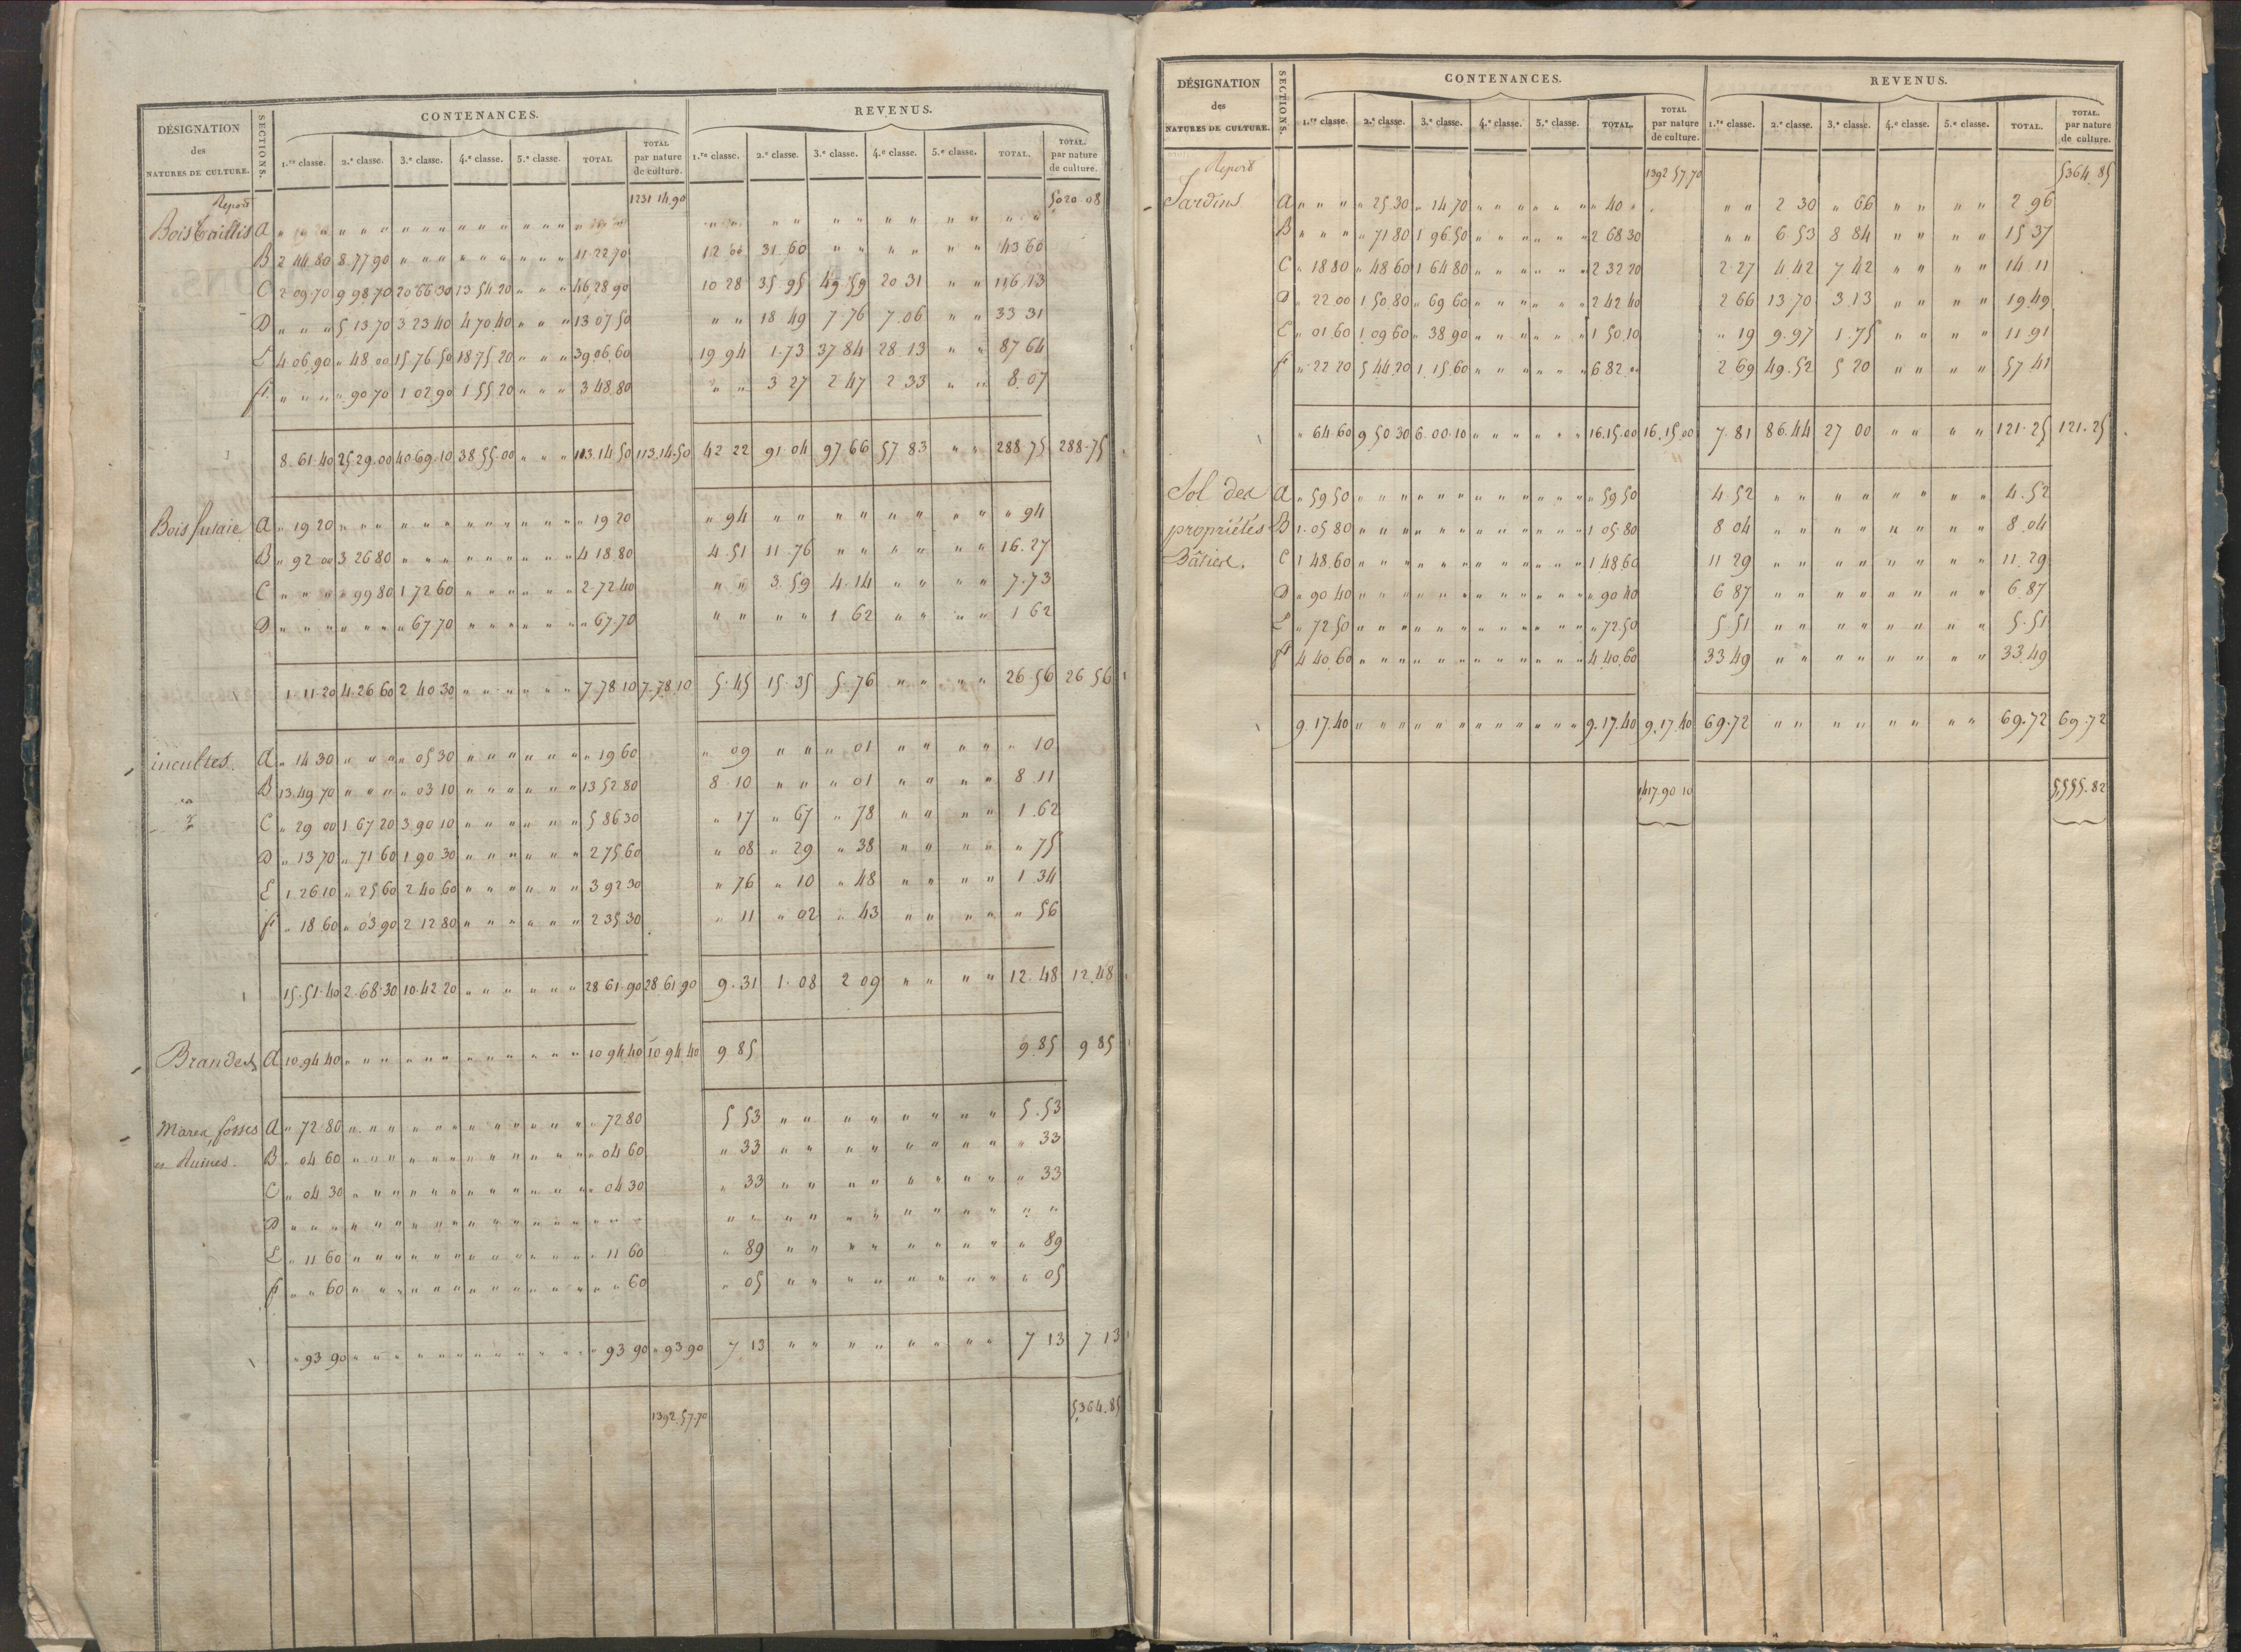 DÉSIGNATION des NATURES DE CULTURE. SECTIONS. CONTENANCES. REVENUS.
1.re classe. 2.e classe. 3.e classe. 4.e classe. 5.e classe. TOTAL TOTAL par nature de culture. 1.re classe. 2.e classe. 3.e classe. 4.e classe. 5.e classe. TOTAL. TOTAL. par nature de culture.
Report 1231 14.90 5020 08
Bois Taillis A " " " " " " " " " " " " " " " " " " " " " " " " " " " " " "
B 2 44 80 8.77 90 " " " " " " " " " 11.22 70 12 00 31 60 " " " " " " 43 60
C 2 09.70 9 98.70 20 66 30 13 54 20 " " " 46,28 90 10 28 35 95 49 59 20 31 " " 116,13
D " " " 5 13.70 3 23 40 4 70.40 " " " 13 07 50 " " 18 49 7.76 7.06 " " 33 31
E 4.06.90 " 48 00 15.76.50 18.75.20 " " " 39 06.60 19 94 1.73 37 84 28.13 " " 87 64
F " " " " 90 70 1 02.90 1 55 20 " " " 3 48.80 " " 3 27 2 47 2 33 " " 8.07
8.61.40 25.29.00 40.69.10 38.55.00 " " " 113.14 50 113.14.50 42 22 91 04 97.66 57 83 " " 288.75 288.75
Bois futaie A " 19 20 " " " " " " " " " " " " " 19 20 " 94 " " " " " " " " " 94
B " 92 00 3 26 80 " " " " " " " " " 4 18 80 4.51 11.76 " " " " " " 16.27
C " " " " 99 80 1 72 60 " " " " " " 2.72 40 " " 3.59 4.14 " " " " 7.73
D " " " " " " " 67.70 " " " " " " " 67.70 " " " " 1 62 " " " " 1 62
1.11.20 4.26 60 2 40 30 " " " " " " 7.78.10 7.78.10 5.45 15.35 5.76 " " " " 26.56 26 56
incultes. A " 14 30 " " " " 05 30 " " " " " " " 19 60 " 09 " " " 01 " " " " " 10
B 13.49 70 " " " " 03 10 " " " " " " 13 52 80 8.10 " " " 01 " " " " 8 11
C " 29 00 1 67 20 3.90 10 " " " " " " 5 86 30 " 17 " 67 " 78 " " " " 1.62
D " 13 70 " 71 60 1 90 30 " " " " " " 2 75 60 " 08 " 29 " 38 " " " " " 75
E 1 26 10 " 25 60 2 40 60 " " " " " " 3 92 30 " 76 " 10 " 48 " " " " 1 34
F " 18 60 " 03 90 2 12 80 " " " " " " 2 35 30 " 11 " 02 " 43 " " " " " 56
15.51.40 2.68.30 10.42 20 " " " " " " 28 61.90 28 61 90 9.31 1.08 2 09 " " " " 12.48 12.48
Brandes A 10.94 40 " " " " " " " " " " " " 10 94.40 10 94.40 9 85 9.85 9 85
Mares, fosses A " 72 80 " " " " " " " " " " " " " 72 80 5 53 " " " " " " " " 5.53
et Ruines. B " 04 60 " " " " " " " " " " " " " 04 60 " 33 " " " " " " " " " 33
C " 04 30 " " " " " " " " " " " " " 04 30 " 33 " " " " " " " " " 33
D " " " " " " " " " " " " " " " " " " " " " " " " " " " " " "
E " 11 60 " " " " " " " " " " " " " 11 60 " 89 " " " " " " " " " 89
F " " 60 " " " " " " " " " " " " " " 60 " 05 " " " " " " " " " 05
" 93 90 " " " " " " " " " " " " " 93 90 " 93 90 7 13 " " " " " " " " 7 13 7 13
1392.57.70 5,364.85
DÉSIGNATION des NATURES DE CULTURE. SECTIONS. CONTENANCES. REVENUS.
1.re classe. 2.e classe. 3.e classe. 4.e classe. 5.e classe. TOTAL. TOTAL par nature de culture. 1.re classe. 2.e classe. 3.e classe. 4.e classe. 5.e classe. TOTAL. TOTAL. par nature de culture.
Report 1392 57.70 5364.85
Jardins A " " " " 25.30 " 14 70 " " " " " " " 40 " " " 2 30 " 66 " " " " 2 96
B " " " " 71 80 1 96.50 " " " " " " 2 68 30 " " 6.53 8 84 " " " " 15 37
C " 18 80 " 48 60 1 64 80 " " " " " " 2 32 20 2.27 4 42 7 42 " " " " 14 11
D " 22.00 1 50.80 " 69 60 " " " " " " 2 42 40 2 66 13.70 3.13 " " " " 19.49
E " 01 60 1.09 60 " 38 90 " " " " " " 1 50 10 " 19 9.97 1.75 " " " " 11.91
F " 22 20 5 44.20 1.15.60 " " " " " " 6 82 00 2 69 49.52 5 20 " " " " 57 41
" 64.60 9 50 30 6.00.10 " " " " " " 16.15.00 16.15.00 7.81 86.44 27 00 " " " " 121.25 121.25
Sol des A " 59 50 " " " " " " " " " " " " " 59 50 4.52 " " " " " " " " 4.52
propriétés B 1.05 80 " " " " " " " " " " " " 1 05.80 8 04 " " " " " " " " 8.04
Bâties. C 1 48.60 " " " " " " " " " " " " 1 48 60 11 29 " " " " " " " " 11.29
D " 90 40 " " " " " " " " " " " " " 90 40 6 87 " " " " " " " " 6.87
E " 72 50 " " " " " " " " " " " " " 72.50 5.51 " " " " " " " " 5.51
F 4 40.60 " " " " " " " " " " " " 4 40.60 33 49 " " " " " " " " 33.49
9.17.40 " " " " " " " " " " " " 9.17.40 9.17.40 69.72 " " " " " " " " 69.72 69.72
1,417.90 10 5,555.82